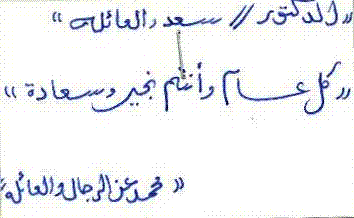 « الدكتور // سعد والعائلة »
« كل عام وأنتم بخير وسعادة »
« محمد عز الرجال والعائلة »